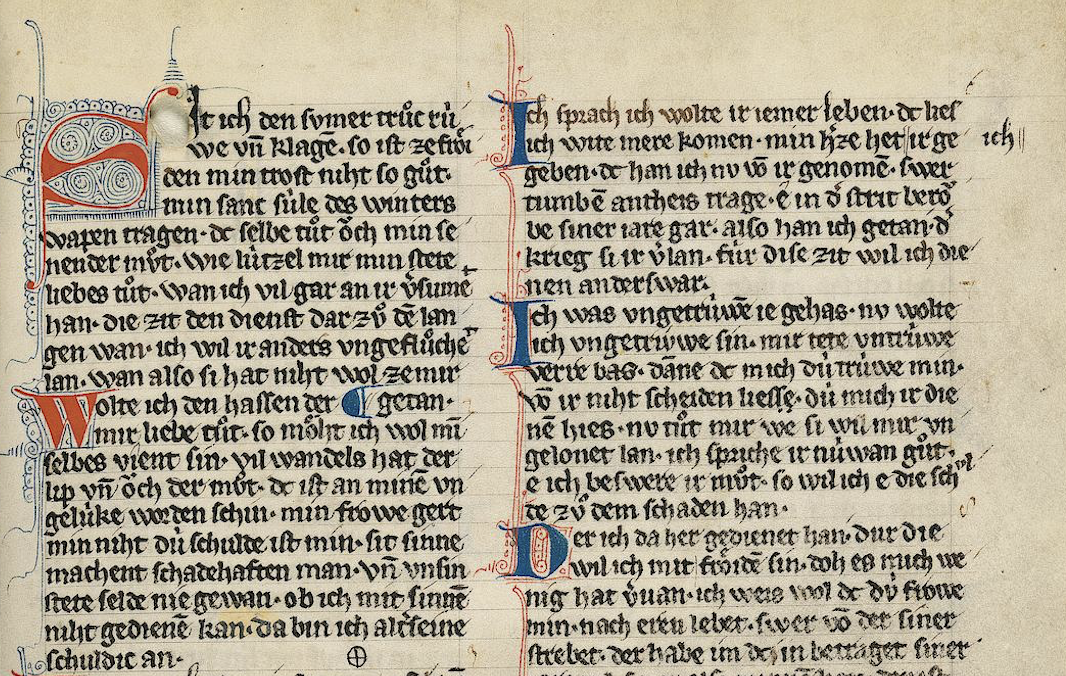 Sit ich den sumer truͦc ruͥ
we vn̄ klage. so ist ze froͥi
den min trost niht so guͦt.
min sanc suͥle des winters
wapen tragen. dc selbe tuͦt oͮch min se
nender muͦt. wie luͥtzel mir min stete
liebes tuͦt. wan ich vil gar an ir v̓sumet
han. die zit den dienst dar zuͦ dē lan
gen wan. ich wil ir anders vngefluͦchet
lan. wan also si hat niht wol ze mir
Wolte ich den hassen der ¶ getan.
mir liebe tuͦt. so moͤht ich wol mī
selbes vient sin. vil wandels hat der
lip vn̄ oͮch der muͦt. dc ist an minē vn
geluͥke worden schin. min frowe gert
min niht duͥ schulde ist min. sit sinne
machent schadehaften man. vn̄ vnsin
stete selde nie gewan. ob ich mit sinnē
niht gedienē kan. da bin ich alterseine
schuldic an.
Ich sprach ich wolte ir iemer leben. dc lies
ich wite mere komen. min h̓ze het ir ge ich
geben. dc han ich nv vō ir genomē. swer
tumbē antheis trage. e in d̓ strit bero
be siner iare gar. also han ich getan. d̓
krieg si ir v̓lan. fuͥr dise zit wil ich die
nen anderswar.
Ich was vngetruͥwē ie gehas. nv wolte
ich vngetruwe sin. mir tete vntruͥwe
verre bas. dāne dc mich duͥ truͥwe min.
vō ir niht scheiden liesse. duͥ mich ir die
nē hies. nv tuͦt mir we si wil mir vn
gelonet lan. ich spriche ir nuͥwan guͦt.
e ich beswere ir muͦt. so wil ich e die schvl
de zuͦ dem schaden han.
Der ich da her gedienet han. dur die
wil ich mit froͤidē sin. doh es mich we
nig hat v̓uan. ich weis wol dc duͥ frowe
min. nach eren lebet. swer vō der siner
strebet. der habe im dc in betraget siner